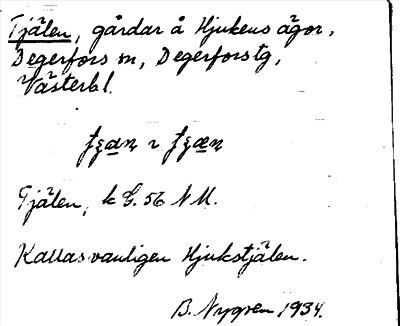 Tjälen, gårdar å Hjukens ägor,
Degerfors sn, Degerforstg,
Västerbl.
Tjälen, k G. 56 NM.
Kallas vanligen Hjukstjälen.
B. Nygren 1934.